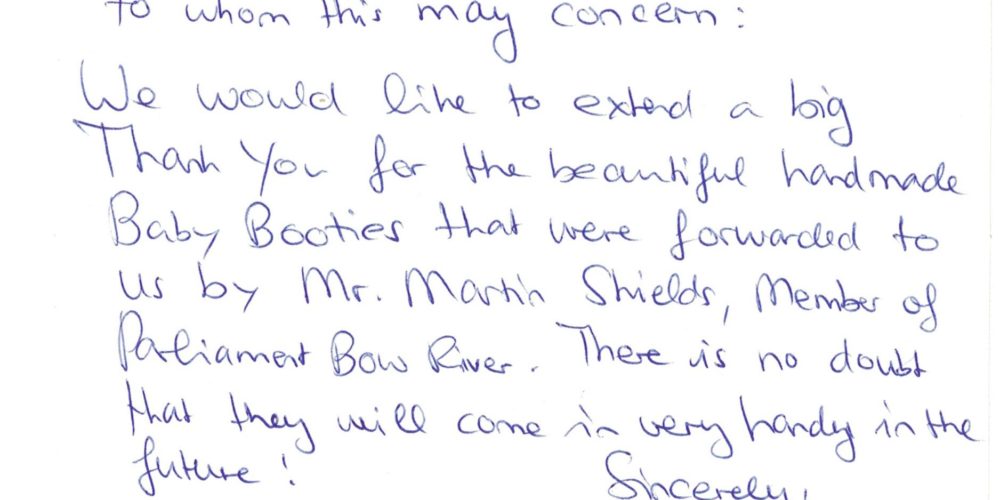 To whom this may concern:
We would like to extend a big
Thank You for the beautiful handmade
Baby Booties that were forwarded to
us by Mr. Martin Shields, Member of
Parliament Bow River. There is no doubt
that they will come in very handy in the
future!
Sincerely,